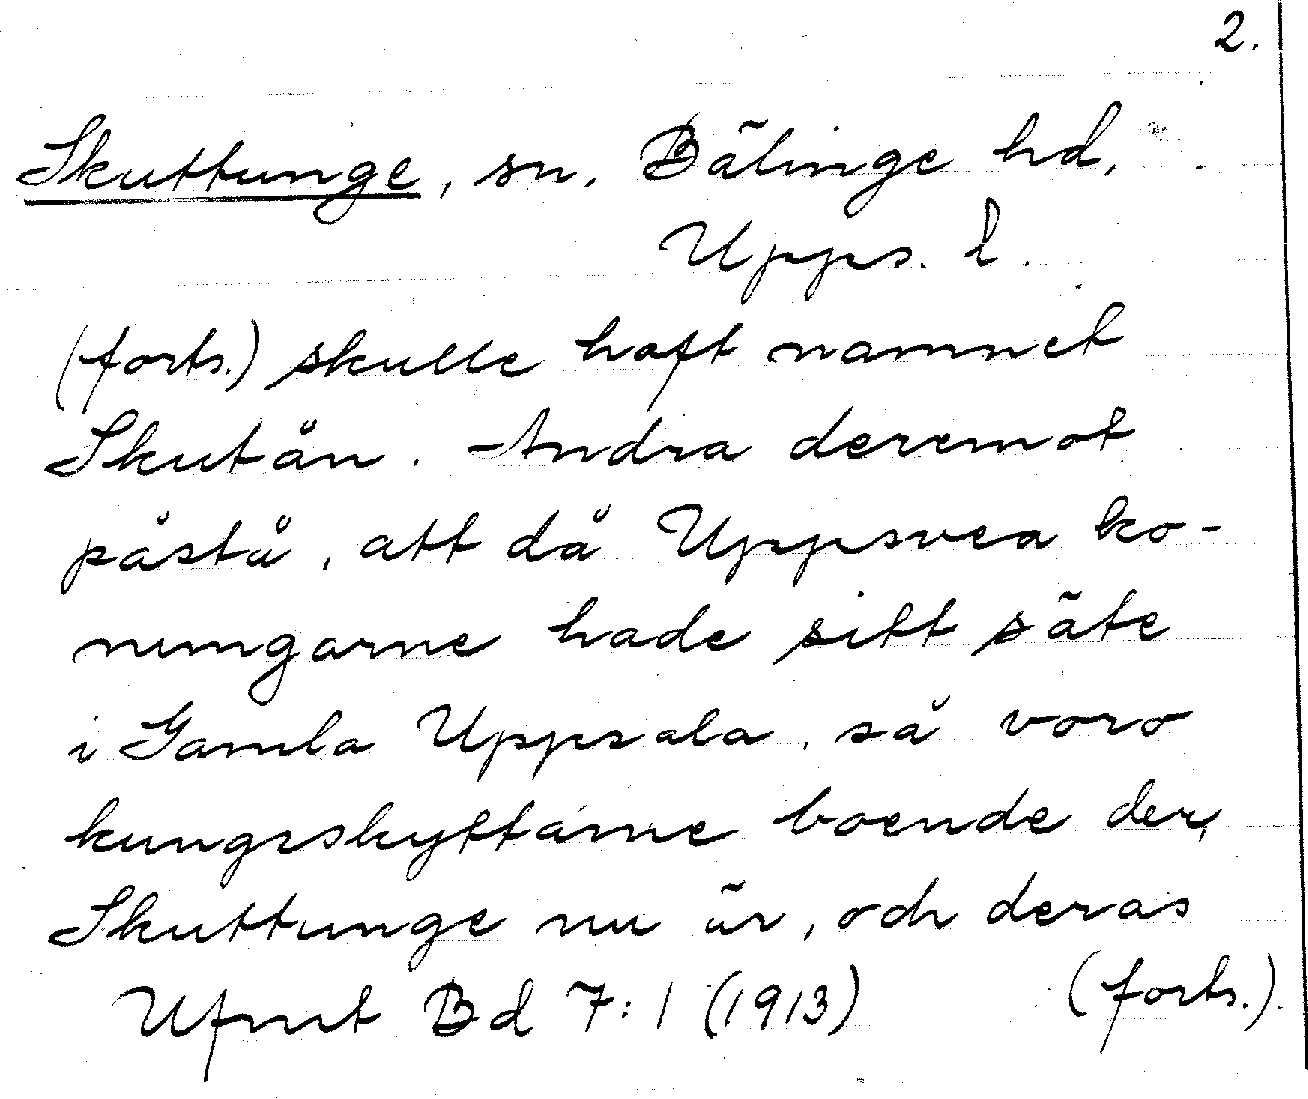 2.
Skuttunge, sn, Bälinge hd,
Upps. l.
(forts.) skulle haft namnet
Skutån. Andra deremot
påstå, att då Uppsvea ko-
nungarne hade sitt säte
i Gamla Uppsala, så voro
kungsskyttarne boende der,
Skuttunge nu är, och deras
Ufmt Bd 7:1 (1913) (forts.).